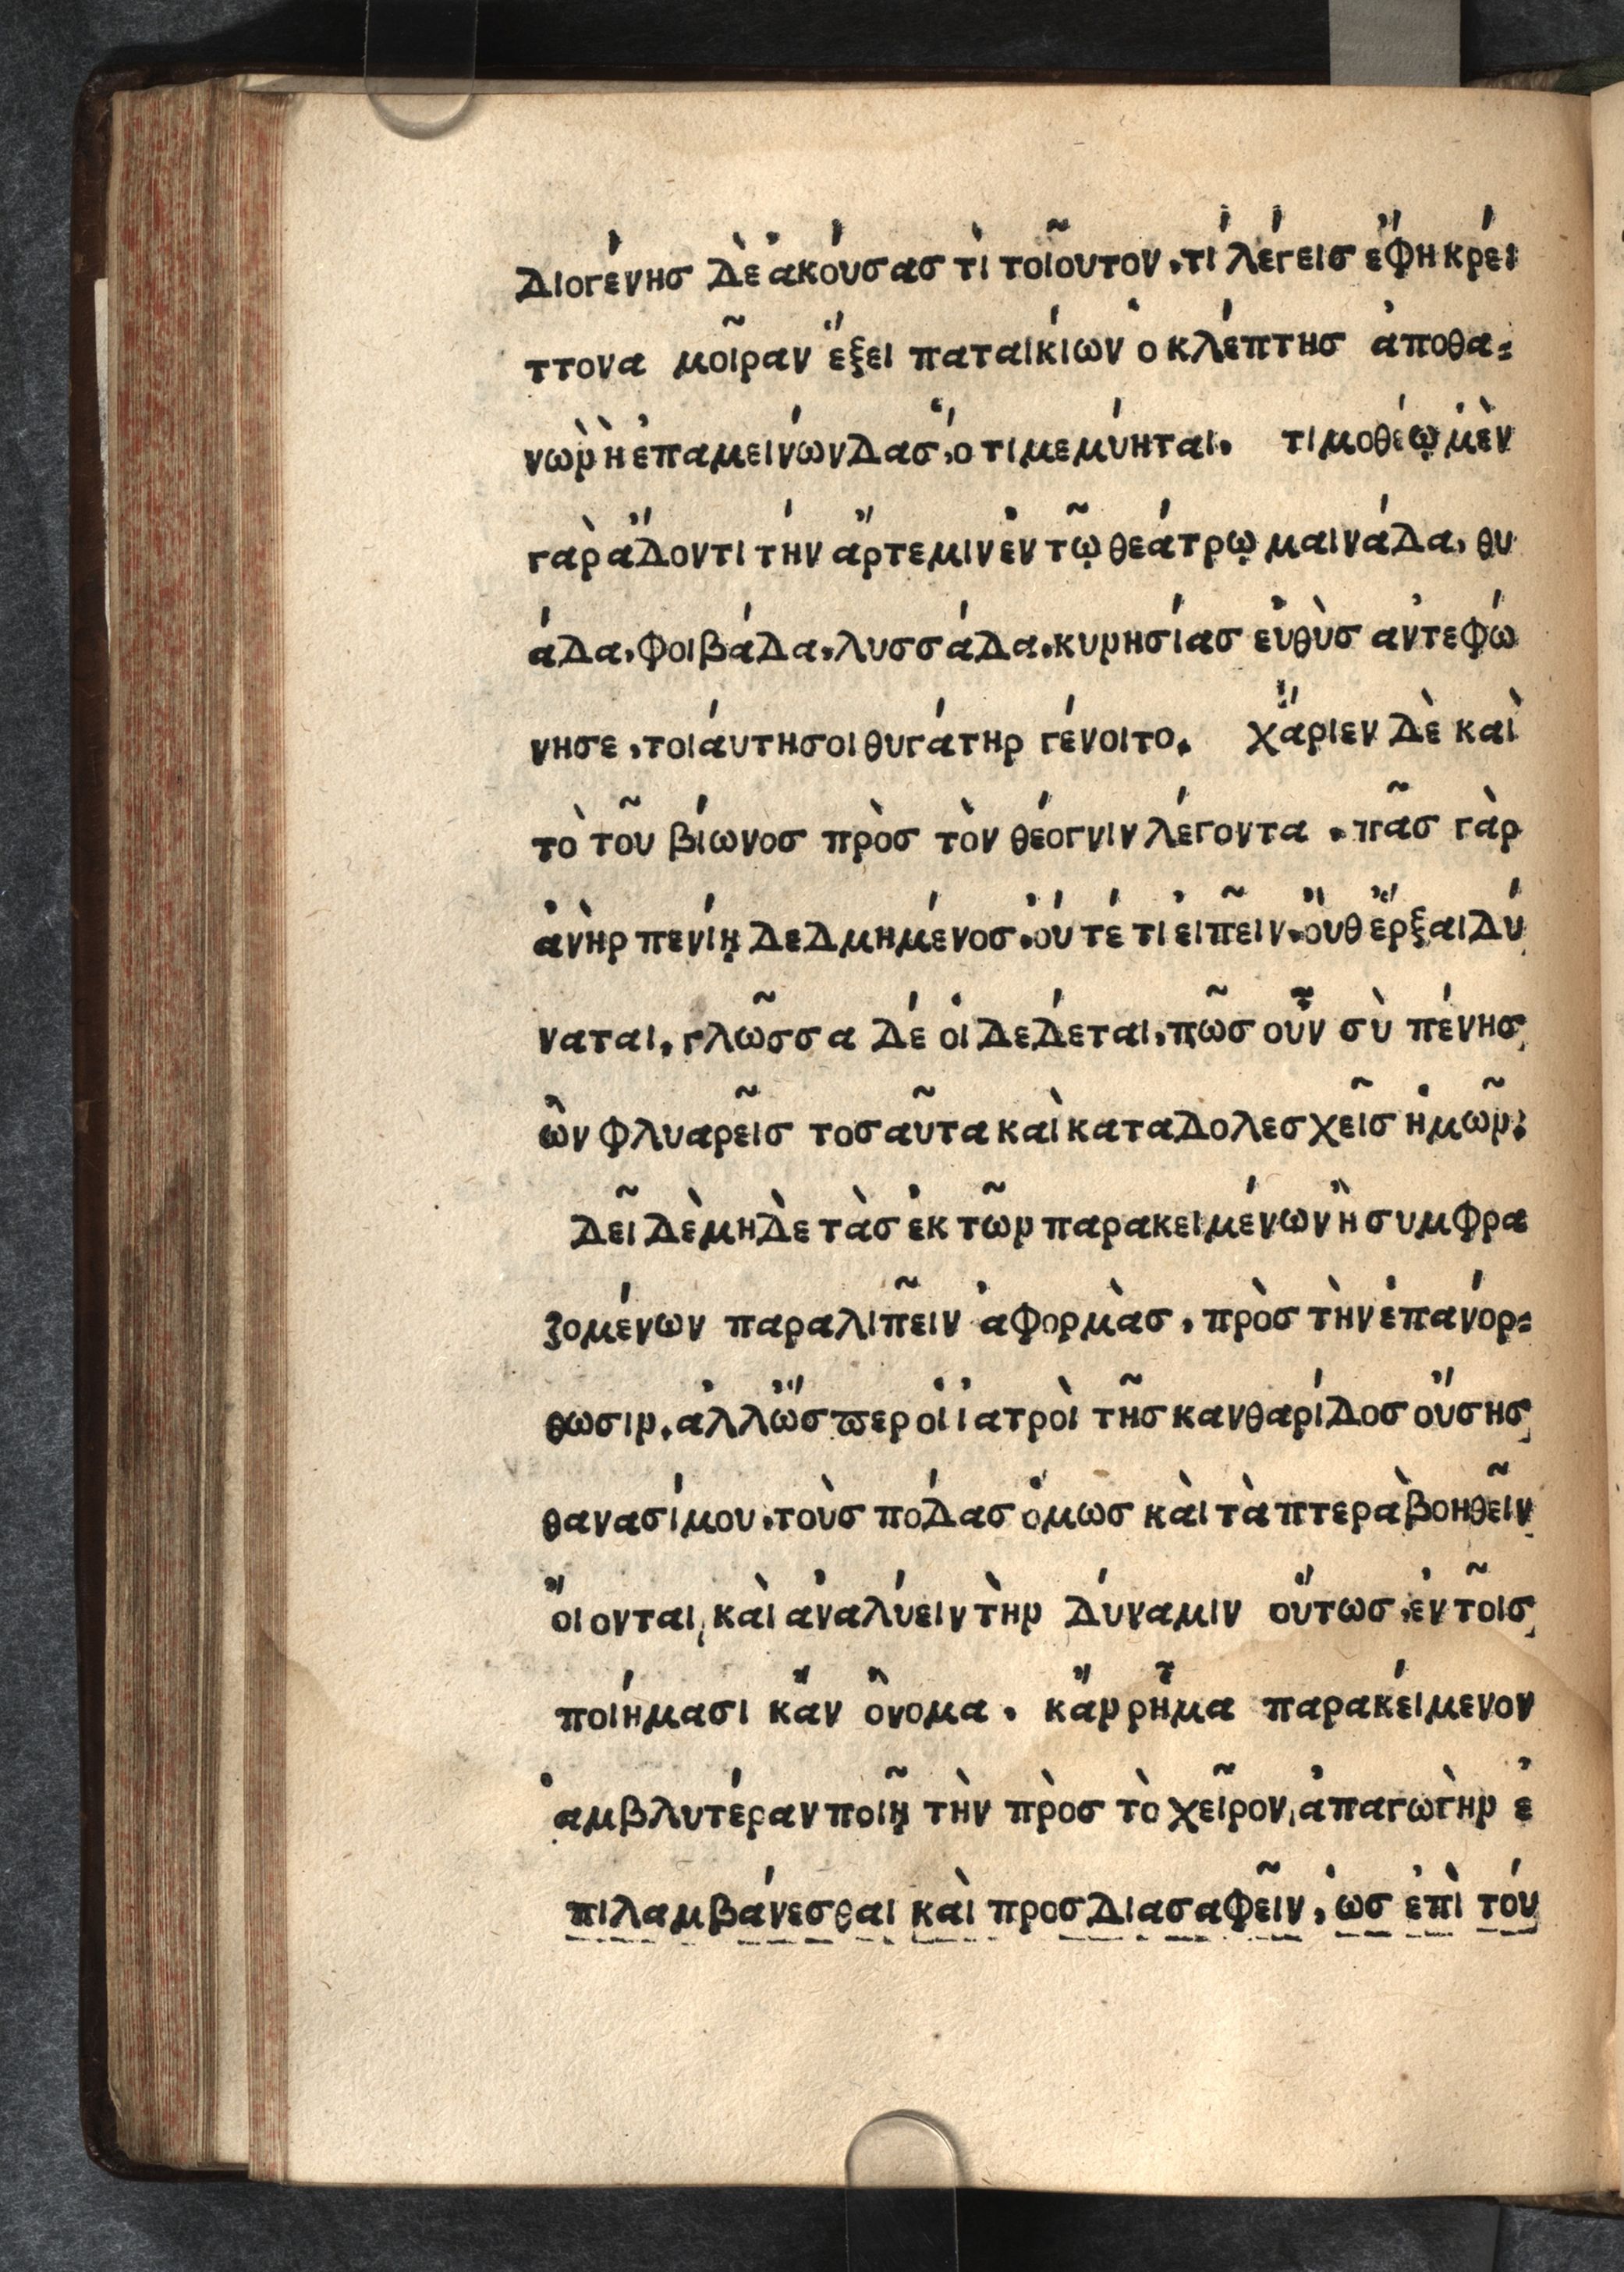 Διογένησ Δὲ ἀκόυσασ τὶ τοῖουτον, τί λέγεισ ἔφη κρέι
ττονα μοῖραν ἕξει παταικίων ὁ κλέπτησ ἀποθα=
νὼν ἢ ἐπαμεινώνΔασ, ὅτι μεμύηται. τιμοθέῳ μὲν
γαρ ἄΔοντι τήν ἄρτεμιν ἐν τῷ θεάτρῳ μαινάΔα, θυ
άΔα, φοιβάΔα, λυσσάΔα, κυνησίασ ἐυθὺσ ἀντεφώ
νησε, τοιάυτη σοι θυγάτηρ γένοιτο. χἄριεν Δὲ καὶ
τὸ τοῦ βίωνοσ πρὸσ τὸν θέογνιν λέγοντα. πᾶσ γὰρ
ἀνὴρ πενίῃ ΔεΔμημένοσ, ὀύτέ τί ἐιπεῖν, ὄυθ ἔρξαι Δύ
ναται, γλῶσσα Δέ ὁι ΔέΔεται, πῶσ οὖν σὺ πένησ
ὢν φλυαρεῖσ τοσαῦτα καὶ καταΔολεσχεῖσ ἡμῶν;
Δεῖ Δὲ μηΔὲ τὰσ ἐκ τῶν παρακειμένων ἢ συμφρα
ζομένων παραλιπεῖν ἀφορμὰσ, πρὸσ τὴν ἐπανόρ=
θωσιν, ἀλλ ὥσπερ ὁι ἰατρὸι τῆσ κανθαρίΔοσ ὄυσησ
θανασίμου, τοὺσ πόΔασ ὁμωσ κὰι τὰ πτερὰ βοηθεῖν
ὄιονται, κὰι ἀναλύειν τὴν Δύναμιν ὅυτωσ, ἐν τοῖσ
ποιήμασι κἄν ὂνομα. κἄν ρῆμα παρακέιμενον
ἀμβλυτέραν ποιῇ τὴν πρὸσ τὸ χεῖρον, ἀπαγωγὴν ἐ
πιλαμβάνεσθαι κὰι προσΔιασαφεῖν, ὡσ ἐπὶ τόυ